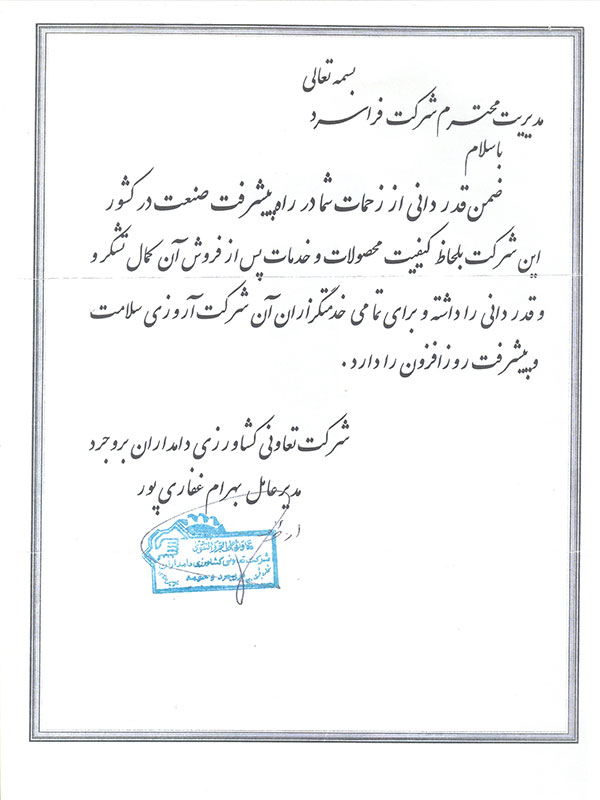 بسمه تعالی
مدیریت محترم شرکت فراسرد
باسلام
ضمن قدردانی از زحمات شما در راه پیشرفت صنعت در کشور
این شرکت بلحاظ کیفیت محصولات و خدمات پس از فروش آن کمال تشکر و
و قدردانی را داشته و برای تمامی خدمتگزاران آن شرکت آروزی سلامت
و پیشرفت روزافزون را دارد .
شرکت تعاونی کشاورزی دامداران بروجرد
مدیرعامل بهرام غفاری پور
شرکت تعاونی کشاورزی دامداران